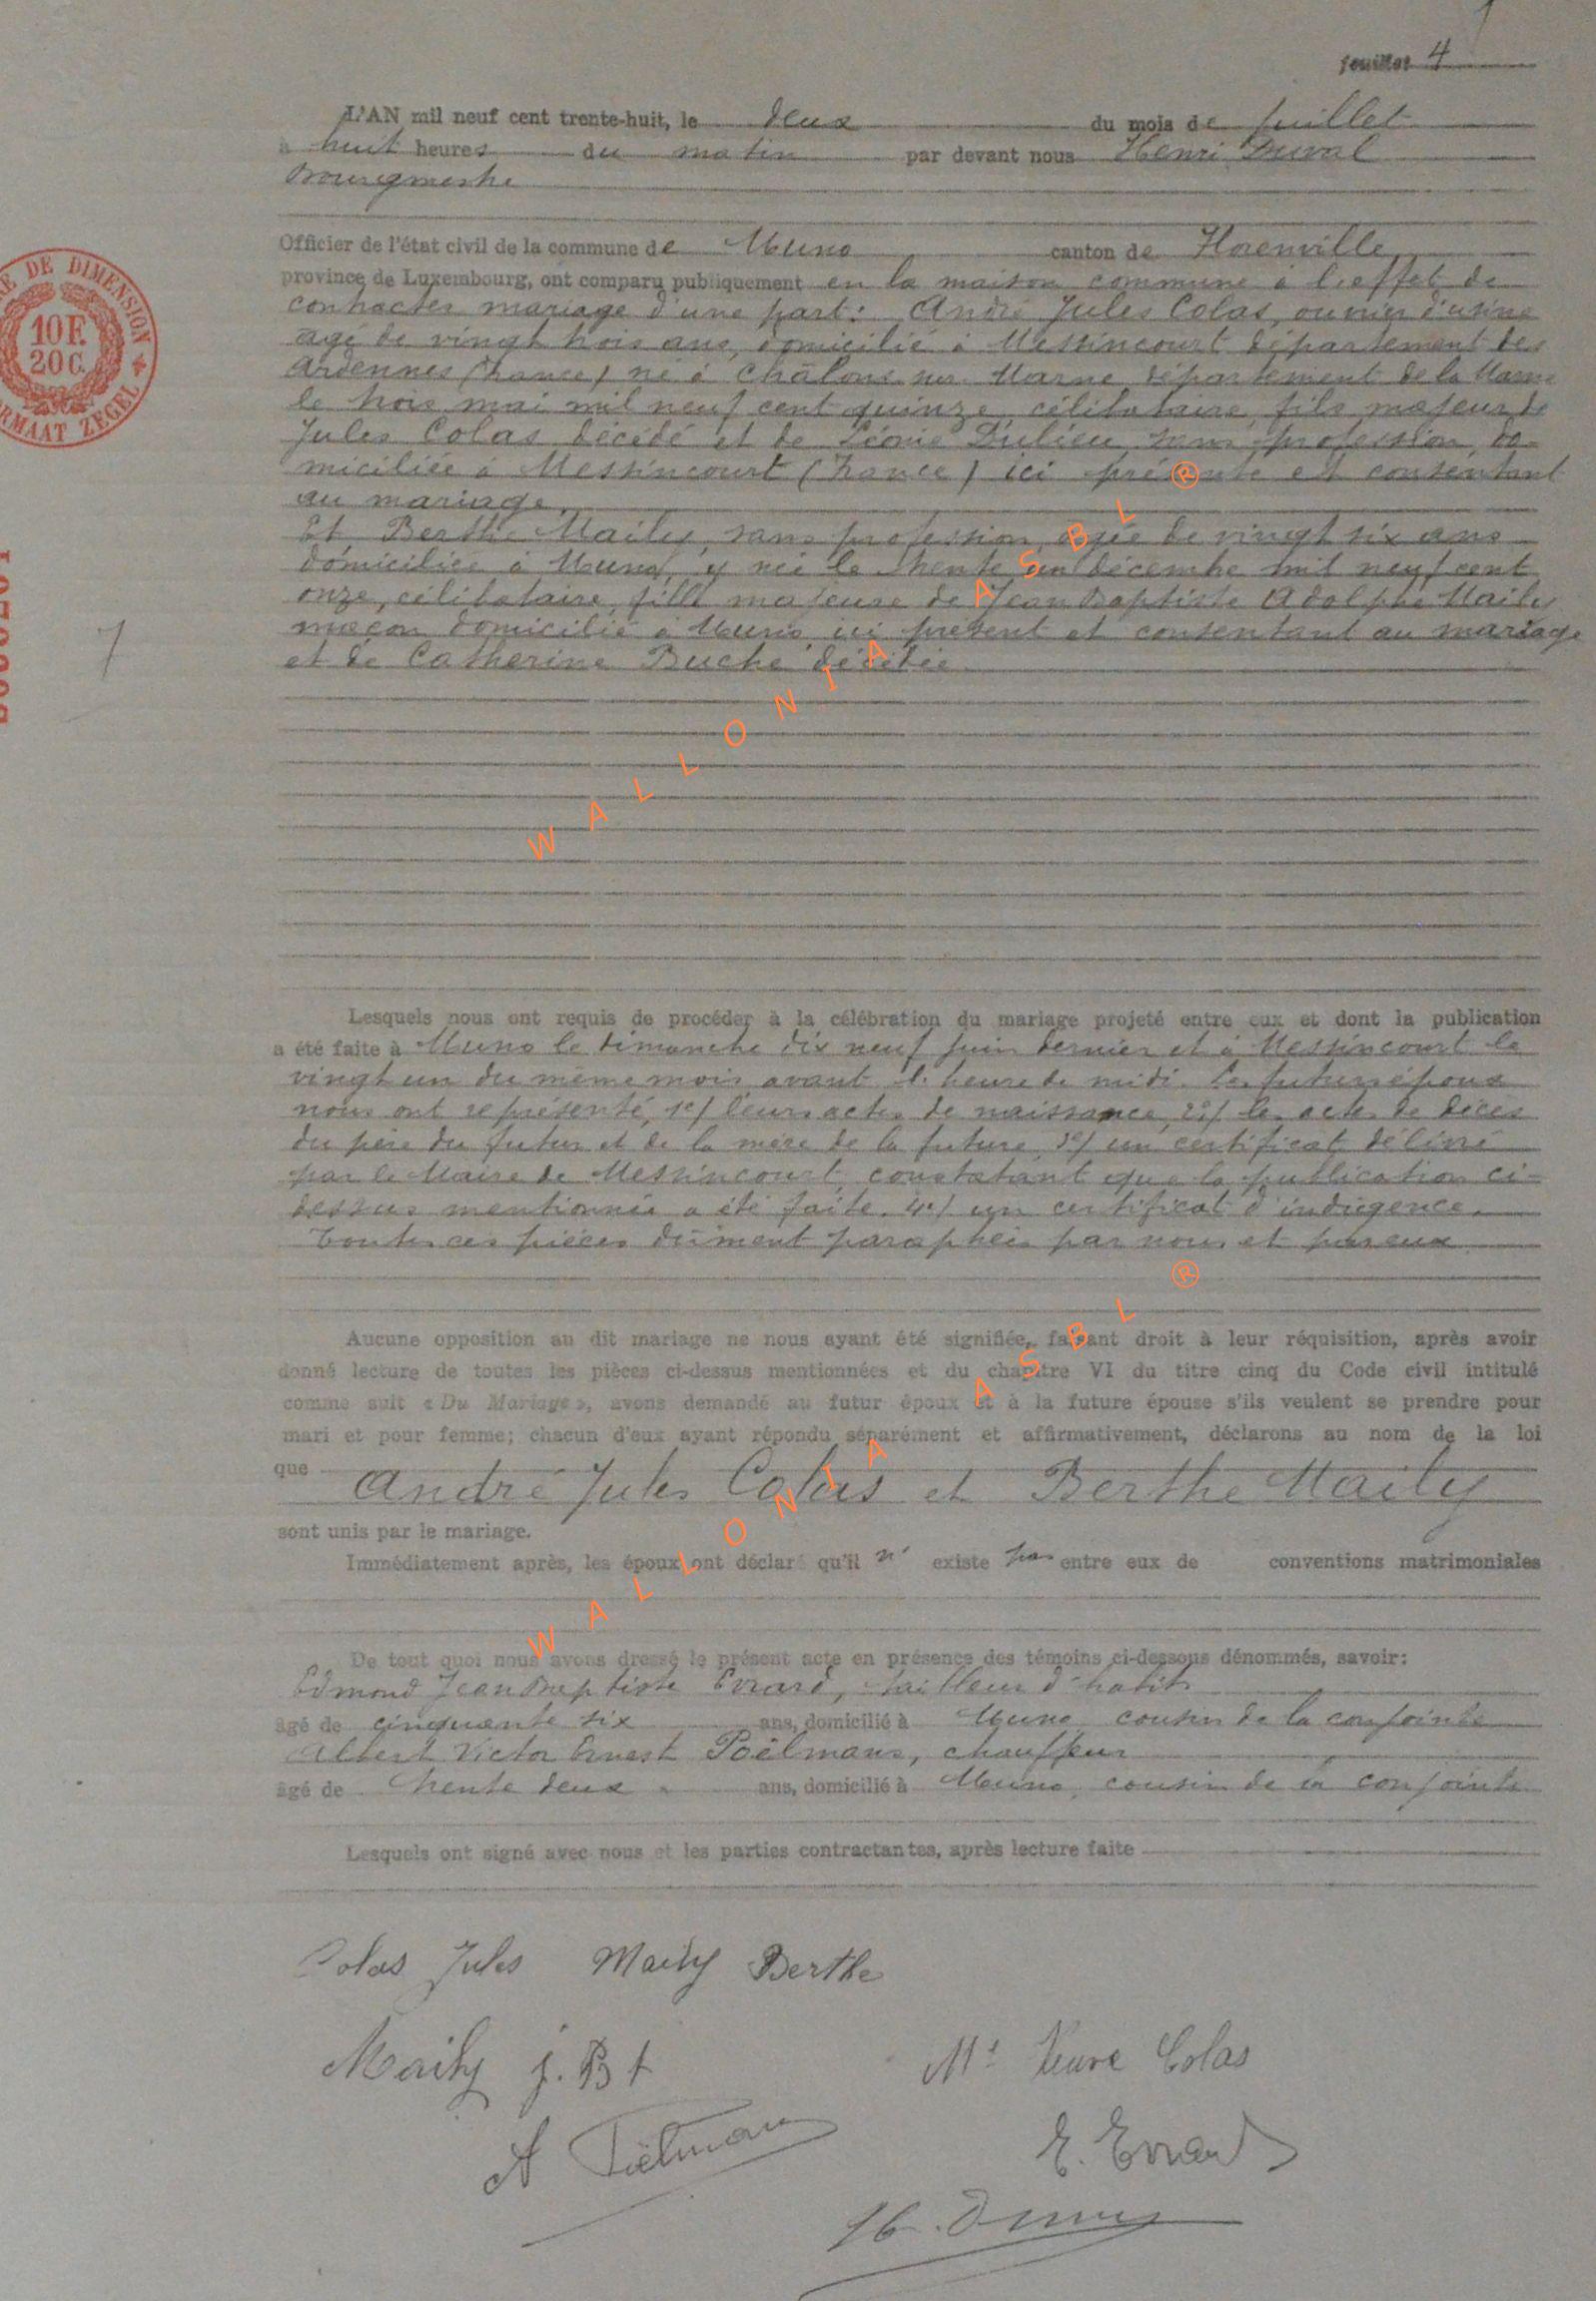 feuillet 4
L'AN mil neuf cent trente-huit, le deux du mois de juillet
à huit heures du matin par devant nous Henri Duval
Bourgmestre
Officier de l'état civil de la commune de Muno canton de Florenville
province de Luxembourg, ont comparu publiquement en la maison commune à l'effet de
contracter mariage d'une part: André Jules Colas, ouvrier d'usine
agé de vingt trois ans, domicilié à Messincourt département des
Ardennes (France) né à Châlons sur Marne, département de la Marne
le trois mai mil neuf cent quinze, célibataire, fils majeur de
Jules Colas décédé et de Léonie Dulieu, sans profession, do-
miciliée à Messincourt (France) ici présente et consentant
au mariage.
Et Berthe Maily, sans profession, agée de vingt six ans
domiciliée à Muno, y née le trente un décembre mil neuf cent
onze, célibataire, fille majeure de Jean Baptiste Adolphe Maily
maçon domicilié à Muno ici présent et consentant au mariage
et de Catherine Buche décédée.
7
DE DIMENSION
10 F.
20 C.
FORMAAT ZEGEL
Lesquels nous ont requis de procéder à la célébration du mariage projeté entre eux et dont la publication
a été faite à Muno le dimanche dix neuf juin dernier et à Messincourt le
vingt un du même mois avant l'heure de midi. Les futurs époux
nous ont représenté, 1e/ leurs actes de naissance, 2e/ les actes de décès
du père du futur et de la mère de la future, 3e/ un certificat délivré
par le Maire de Messincourt, constatant que la publication ci-
dessus mentionnée a été faite. 4e/ un certificat d'indigence.
Toutes ces pièces dûment paraphées par nous et par eux
Aucune opposition au dit mariage ne nous ayant été signifiée, faisant droit à leur réquisition, après avoir
donné lecture de toutes les pièces ci-dessus mentionnées et du chapitre VI du titre cinq du Code civil intitulé
comme suit « Du Mariage », avons demandé au futur époux et à la future épouse s'ils veulent se prendre pour
mari et pour femme; chacun d'eux ayant répondu séparément et affirmativement, déclarons au nom de la loi
que André Jules Colas et Berthe Maily
sont unis par le mariage.
Immédiatement après, les époux ont déclaré qu'il n' existe pas entre eux de conventions matrimoniales
De tout quoi nous avons dressé le présent acte en présence des témoins ci-dessous dénommés, savoir:
Edmond Jean Baptiste Evrard, tailleur d'habits
âgé de cinquante six ans, domicilié à Muno, cousin de la conjointe
Albert Victor Ernest Poëlmans, chauffeur
âgé de trente deux ans, domicilié à Muno, cousin de la conjointe
Lesquels ont signé avec nous et les parties contractantes, après lecture faite
Colas Jules Maily Berthe
Maily j. Bt Me Veuve Colas
A Poëlmans E. Evrard
H. Duval
WALLONIA ASBL ®
WALLONIA ASBL ®